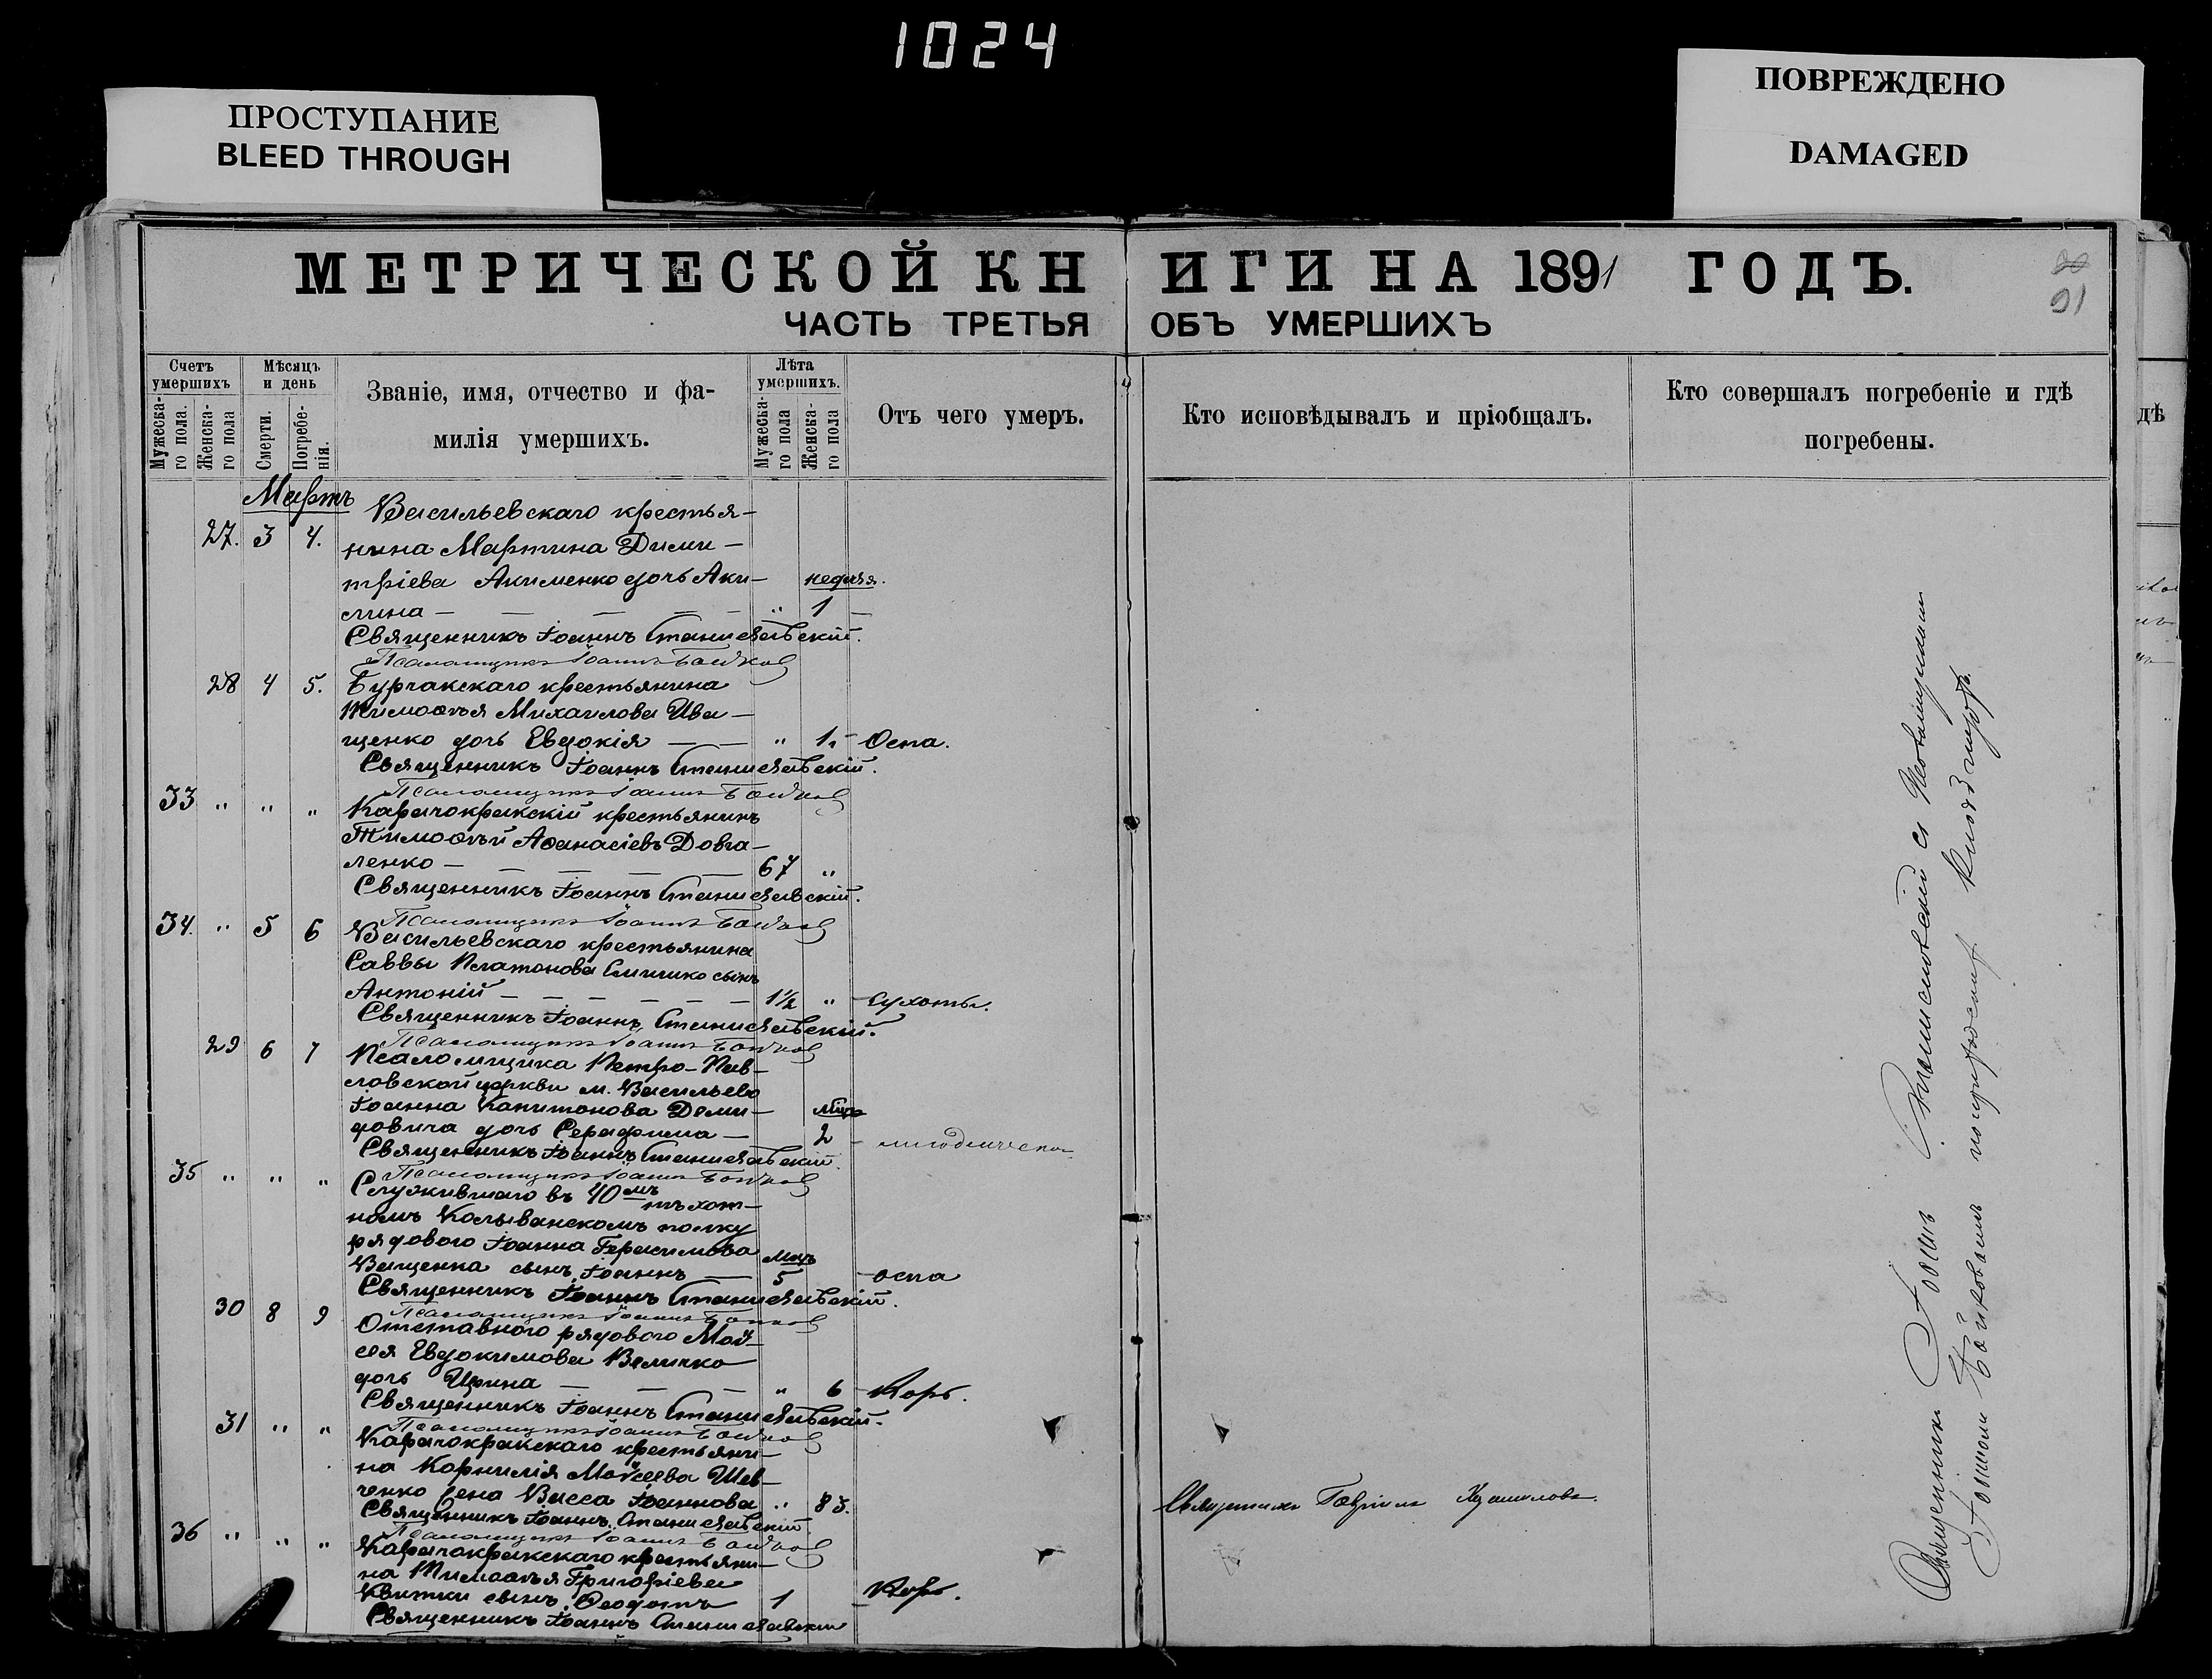 1024
ПРОСТУПАНИЕ
BLEED THROUGH
ПОВРЕЖДЕНО
DAMAGED
МЕТРИЧЕСКОЙ КНИГИ НА 1891 ГОДЪ.
91
ЧАСТЬ ТРЕТЬЯ ОБЪ УМЕРШИХЪ
Счетъ умершихъ
Мужеска-го пола.
Женска-го пола
Мѣсяцъ и день
Смерти.
Погребе-нія.
Званіе, имя, отчество и фа-
милія умершихъ.
Лѣта умершихъ.
Мужеска-го пола
Женска-го пола
Отъ чего умеръ.
Кто исповѣдывалъ и пріобщалъ.
Кто совершалъ погребеніе и гдѣ
погребены.
дѣ
Мартъ
Васильевскаго крестья-
27. 3 4. нина Мартина Дими-
тріева Акименко дочь Аки- недѣля.
лина — „ 1 —
Священникъ Іоаннъ Станиславскій.
Псаломщикъ Іоаннъ Байков
28 4 5. Бурчакскаго крестьянина
Тимоѳея Михаилова Ива-
щенко дочь Евдокія — „ 1. - Оспа.
Священникъ Іоаннъ Станиславскій.
Псаломщикъ Іоаннъ Байков
33 „ „ „ Карачокракскій крестьянинъ
Тимоѳей Аѳанасіевъ Довга-
ленко — 67 „
Священникъ Іоаннъ Станиславскій.
Псаломщикъ Іоаннъ Байков
34. „ 5 6 Васильевскаго крестьянина
Саввы Платонова сынъ
Антоній — 1½ „ - Сухоты.
Священникъ Іоаннъ Станиславскій.
Псаломщикъ Іоаннъ Байков
29 6 7 Псаломщика Петро-Пав-
ловской церкви м. Васильево
Іоанна Капитонова Деми-
довича дочь Серафима — 2 -
Священникъ Іоаннъ Станиславскій.
Псаломщикъ Іоаннъ Байков
35 „ „ „ Служившаго въ 40мъ пѣхот-
номъ Колыванскомъ полку
рядового Іоанна Герасимова мѣц
Ващенка сынъ Іоаннъ — 5 - оспа
Священникъ Іоаннъ Станиславскій.
Псаломщикъ Іоаннъ Байков
30 8 9 Отставного рядового Мой-
сея Евдокимова Величко
дочь Ирина — „ 6 - Корь.
Священникъ Іоаннъ Станиславскій.
Псаломщикъ Іоаннъ Байков
31 „ „ Карачокракскаго крестьяни-
на Корнилія Мойсеева Шев-
ченко жена Васса Іоаннова „ 83.
Священникъ Гавріилъ
Священникъ Іоаннъ Станиславскій
Псаломщикъ Іоаннъ Байков
36 „ „ „ Карачокракскаго крестьяни-
на Тимоѳея Григоріева
Квитки сынъ Ѳеодотъ 1 - Корь.
Священникъ Іоаннъ Станиславскій
Священник Іоанн Станиславскій съ Псаломщиком
Іоанном Байковымъ на приходскомъ кладбищѣ.